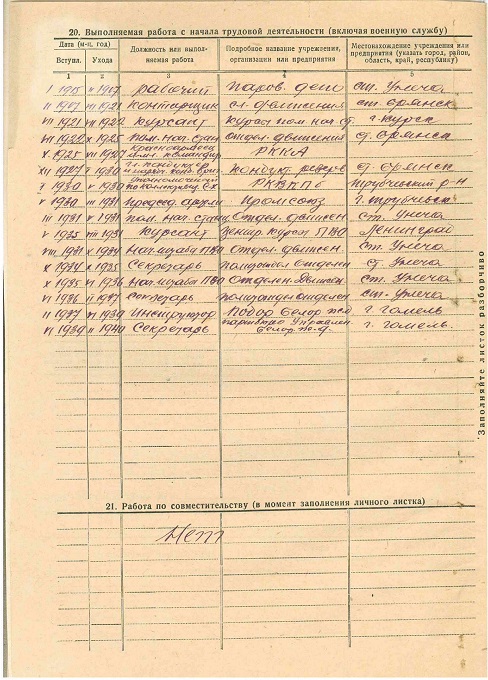 20. Выполняемая работа с начала трудовой деятельности (включая военную службу)
Дата (м-ц. год) Должность или выполняемая работа Подробное название учреждения, организации или предприятия Местонахождение учреждения или предприятия (указать город, район, область, край, республику)
Вступл. Ухода
1 2 3 4 5
I 1915 II 1917 рабочий паров. депо ст. Унеча
II 1917 III 1921 конторщик сл. движения ст. Брянск
III 1921 VII 1922 курсант курсы пом. нач. ст. г. Курск
VII 1922 X 1925 пом. нач. стан. отдел. движения ст. Брянск
X 1925 1927 красноармеец РККА
XII 1927 V 1930 гл. кондуктор кондук. резерв ст. Брянск
I 1930 V 1930 по коллектив. с-х РКВКПб Трубчевский р-н
V 1930 III 1931 председ. артели Промсоюз г. Трубчевск
III 1931 V 1931 пом. нач. стан. Отдел. движен. ст. Унеча
V 1935 VIII 1931 Курсант Центр. курсы ПВО Ленинград
VIII 1931 X 1934 Нач. штаба ПВО Отдел. движен. ст. Унеча
X 1934 X 1935 Секретарь политотдел отделен. ст. Унеча
X 1935 VI 1936 Нач. штаба ПВО Отделен. Движен. ст. Унеча
VI 1936 II 1937 секретарь отделен. ст. Унеча
II 1937 VI 1939 Инструктор Белор. г. Гомель
VI 1939 II 1940 Секретарь партбюро Управлен. Белор. ж.д. г. Гомель.
21. Работа по совместительству (в момент заполнения личного листка)
Нет
Заполняйте листок разборчиво